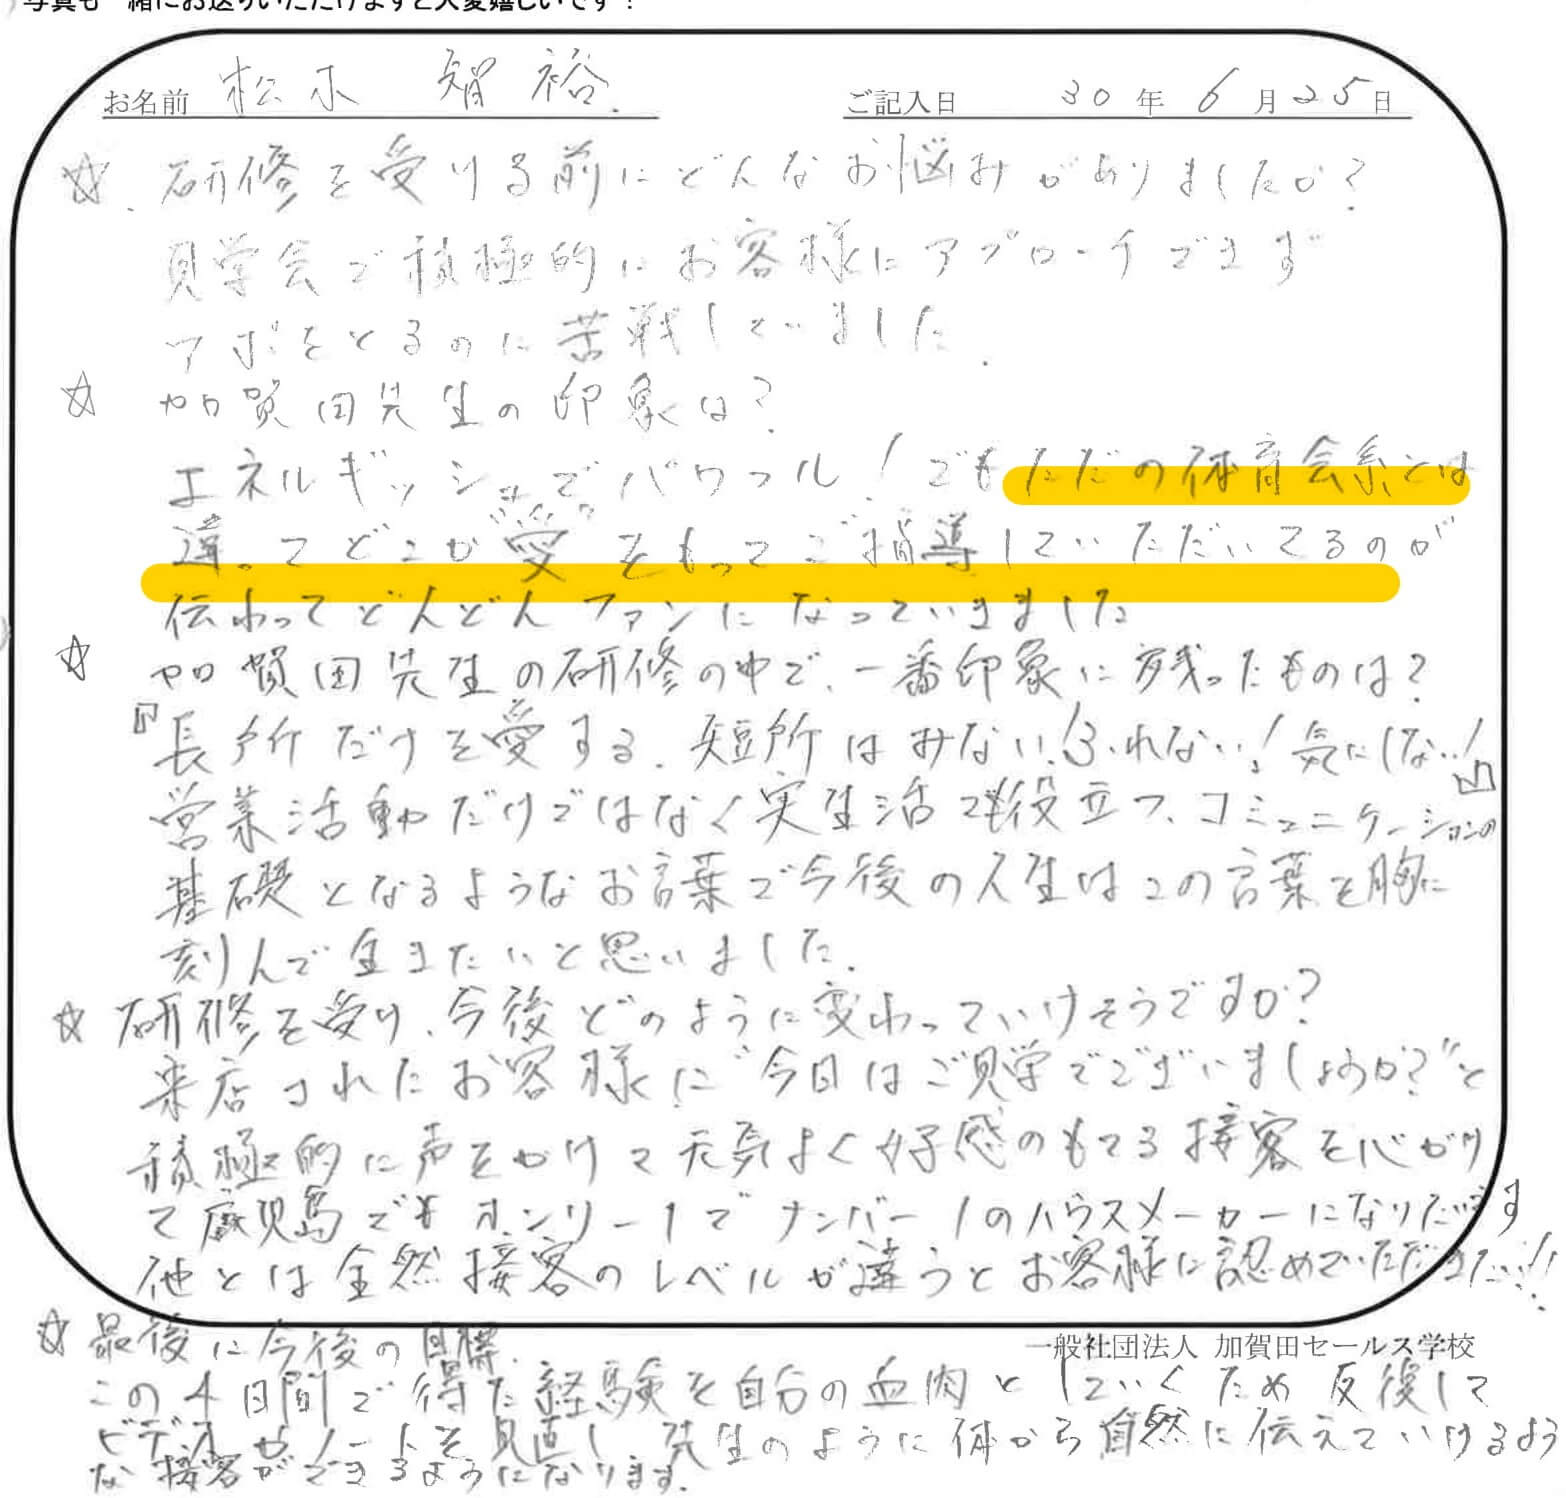 写真も一緒にお送りいただけますと大変嬉しいです！
お名前 松木 智裕 ご記入日 30年6月25日
☆ 研修を受ける前にどんなお悩みがありましたか？
見学会で積極的にお客様にアプローチできず
アポをとるのに苦戦していました.
☆ 加賀田先生の印象は？
エネルギッシュでパワフル！でもただの体育会系とは
違ってどこか"愛"をもってご指導していただいてるのが
伝わってどんどんファンになっていきました
☆ 加賀田先生の研修の中で、一番印象に残ったものは？
『長所だけを愛する. 短所はみない！ふれない！気にしない！』
営業活動だけではなく実生活でも役立つ、コミュニケーションの
基礎となるようなお言葉で今後の人生はこの言葉を胸に
刻んで生きたいと思いました.
☆ 研修を受け、今後どのように変わっていけそうですか？
来店されたお客様に"今日はご見学でございましょうか？"と
積極的に声をかけて元気よく好感のもてる接客を心がけ
て鹿児島でもオンリー1でナンバー1のハウスメーカーになりたいです
他とは全然接客のレベルが違うとお客様に認めていただきたい！！
一般社団法人 加賀田セールス学校
☆ 最後に今後の目標.
この4日間で得た経験を自分の血肉としていくため反復して
ビデオやノートを見直し、先生のように体から自然に伝えていけるよう
な接客ができるようになります.